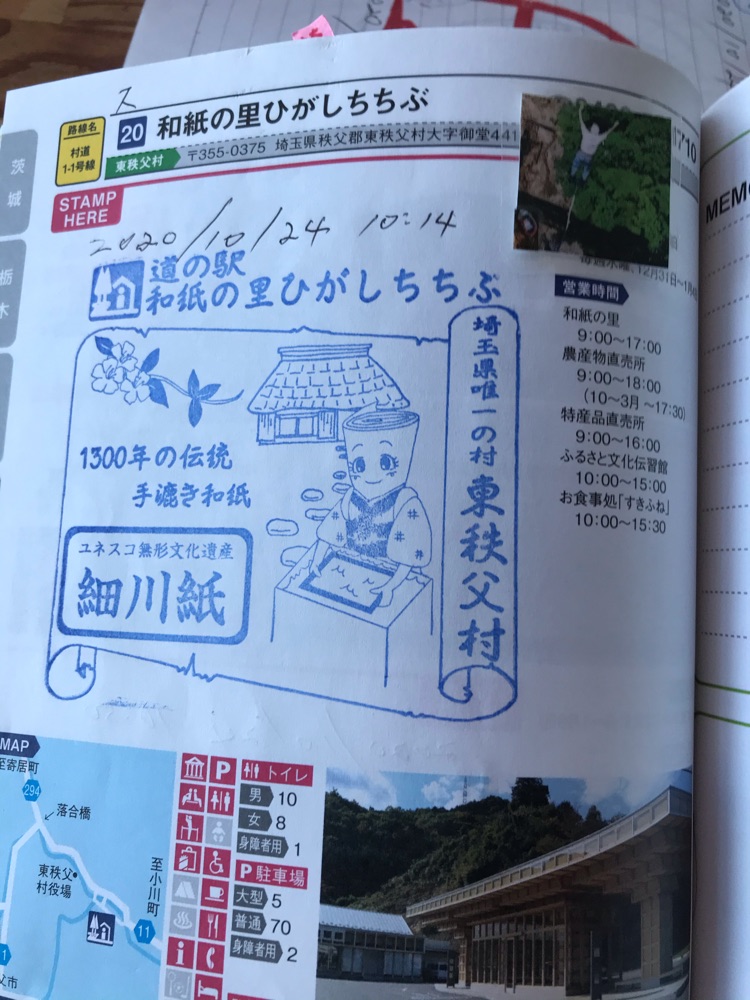 茨城
栃木
路線名
村道
1-1号線
20 和紙の里ひがしちちぶ
東秩父村 〒355-0375 埼玉県秩父郡東秩父村大字御堂441
STAMP
HERE
2020/10/24 10:14
道の駅
和紙の里ひがしちちぶ
埼玉県唯一の村 東秩父村
1300年の伝統
手漉き和紙
ユネスコ無形文化遺産
細川紙
毎週水曜、12月31日~1月
営業時間
和紙の里
9:00~17:00
農産物直売所
9:00~18:00
(10~3月 ~17:30)
特産品直売所
9:00~16:00
ふるさと文化伝習館
10:00~15:00
お食事処「すきふね」
10:00~15:30
MAP
至寄居町
294
落合橋
東秩父
村役場
至小川町
11
父市
P
トイレ
男 10
女 8
身障者用 1
P 駐車場
大型 5
普通 70
身障者用 2
MEMO